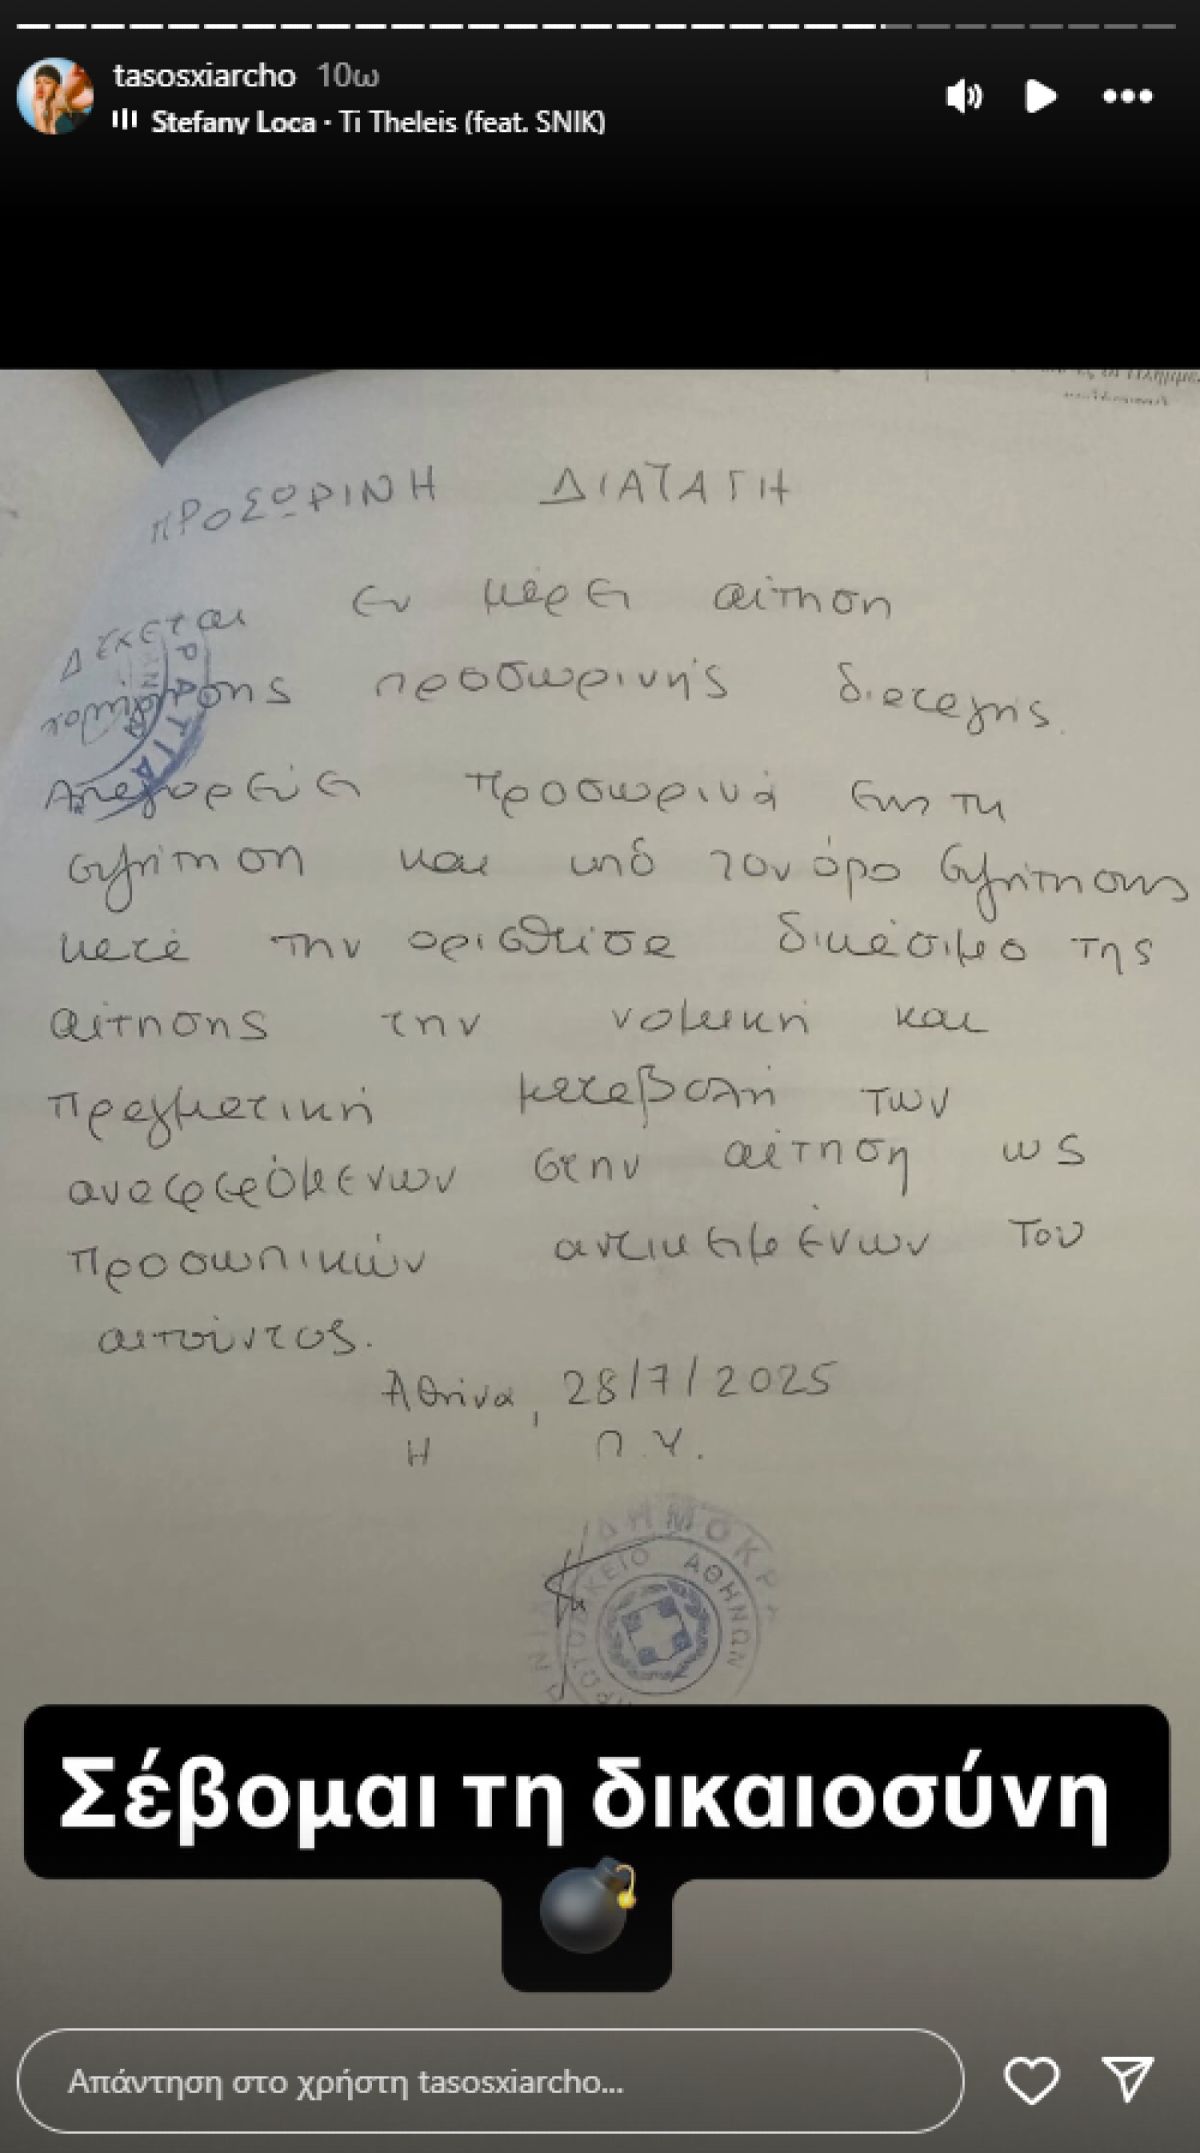 tasosxiarcho 10ω
Stefany Loca · Ti Theleis (feat. SNIK)
ΠΡΟΣΩΡΙΝΗ ΔΙΑΤΑΓΗ
Δέχεται εν μέρει αίτηση
προσωρινής διαταγής.
Απαγορεύει προσωρινά έως τη
συζήτηση και υπό τον όρο συζήτησης
κατά την ορισθείσα δικάσιμο της
αίτησης την νομική και
πραγματική μεταβολή των
αναφερόμενων στην αίτηση ως
προσωπικών αντικειμένων του
αιτούντος.
Αθήνα, 28/7/2025
Η Π.Υ.
ΔΗΜΟΚΡ
ΠΡΩΤΟΔΙΚΕΙΟ ΑΘΗΝΩΝ
Σέβομαι τη δικαιοσύνη
Απάντηση στο χρήστη tasosxiarcho...